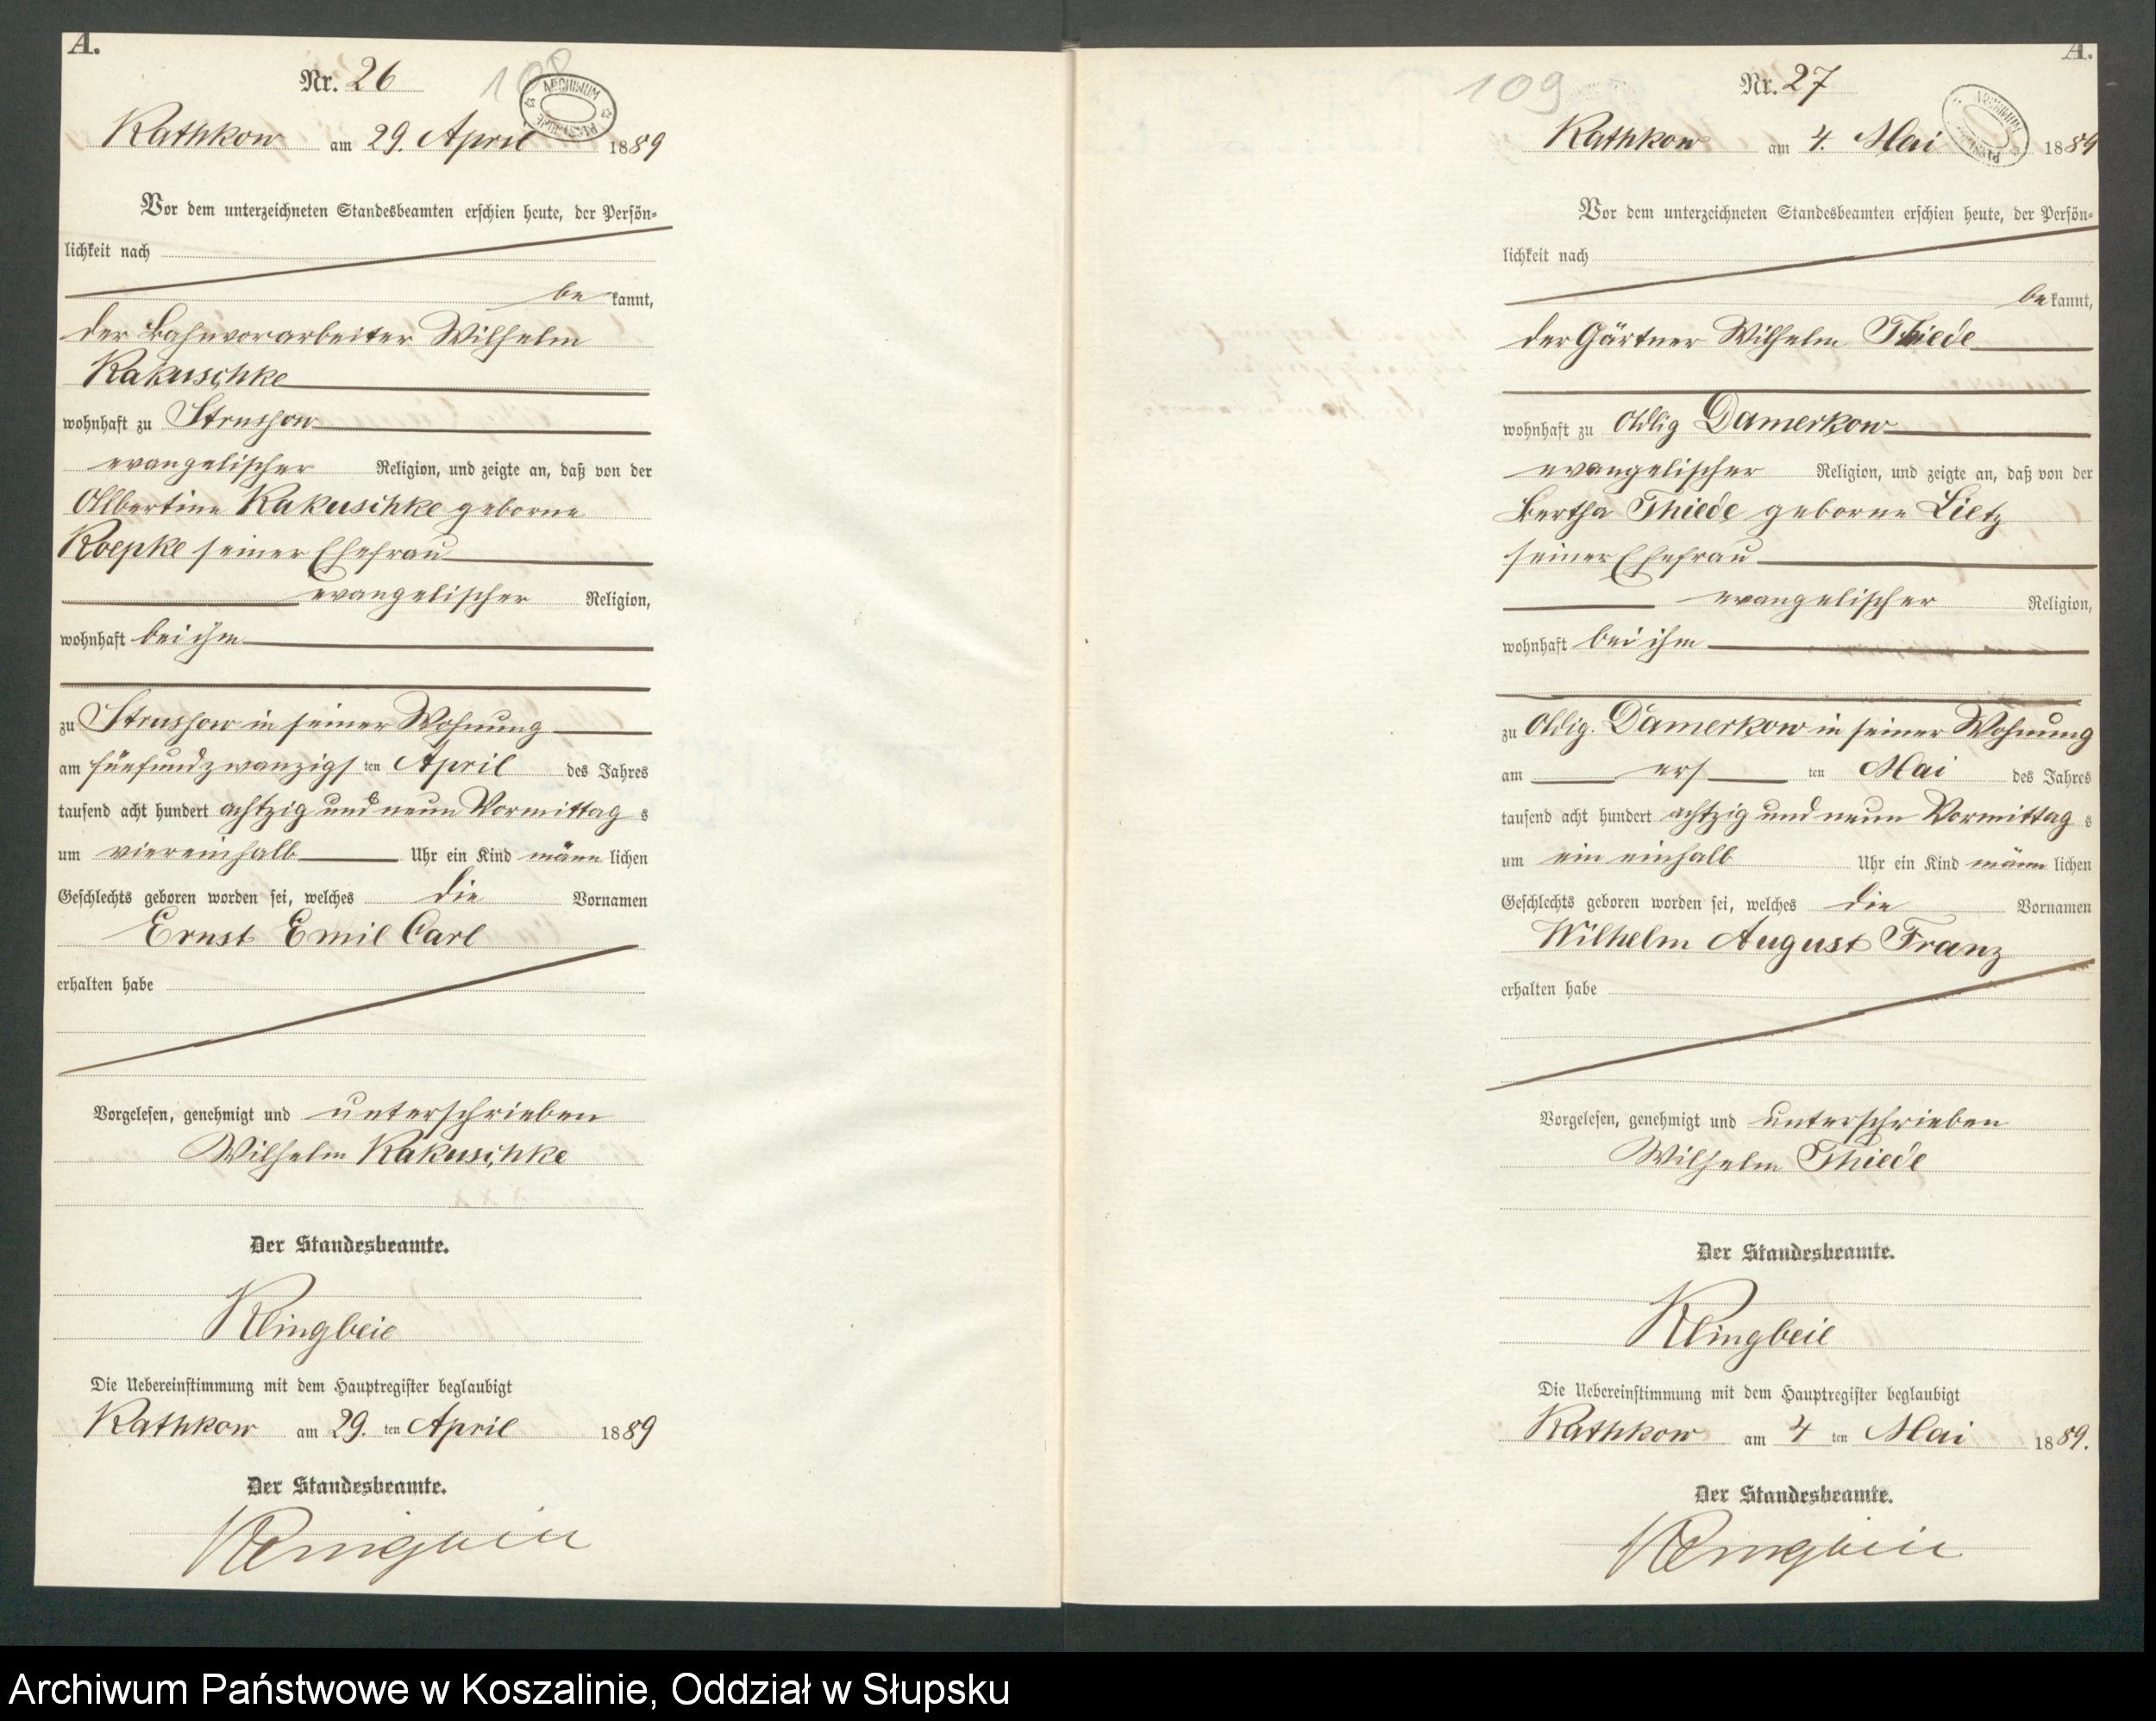 A.
Nr. 26
108
ARCHIWUM
Rathkow am 29. April 1889
Vor dem unterzeichneten Standesbeamten erschien heute, der Persön-
lichkeit nach
be kannt,
der Bahnvorarbeiter Wilhelm
Kakuschke
wohnhaft zu Strussow
evangelischer Religion, und zeigte an, daß von der
Albertine Kakuschke geborne
Koepke seiner Ehefrau
evangelischer Religion,
wohnhaft bei ihm
zu Strussow in seiner Wohnung
am fünfundzwanzigs ten April des Jahres
tausend acht hundert achtzig und neun Vormittag s
um viereinhalb Uhr ein Kind männ lichen
Geschlechts geboren worden sei, welches die Vornamen
Ernst Emil Carl
erhalten habe
Vorgelesen, genehmigt und unterschrieben
Wilhelm Kakuschke
Der Standesbeamte.
Klingbeil
Die Uebereinstimmung mit dem Hauptregister beglaubigt
Rathkow am 29. ten April 1889
Der Standesbeamte.
Klingbeil
A.
109
Nr. 27
ARCHIWUM
Rathkow am 4. Mai 1889
Vor dem unterzeichneten Standesbeamten erschien heute, der Persön-
lichkeit nach
be kannt,
der Gärtner Wilhelm Thiede
wohnhaft zu Adlig Damerkow
evangelischer Religion, und zeigte an, daß von der
Bertha Thiede geborne Lietz
seiner Ehefrau
evangelischer Religion,
wohnhaft bei ihm
zu Adlig. Damerkow in seiner Wohnung
am ers ten Mai des Jahres
tausend acht hundert achtzig und neun Vormittag s
um ein einhalb Uhr ein Kind männ lichen
Geschlechts geboren worden sei, welches die Vornamen
Wilhelm August Franz
erhalten habe
Vorgelesen, genehmigt und unterschrieben
Wilhelm Thiede
Der Standesbeamte.
Klingbeil
Die Uebereinstimmung mit dem Hauptregister beglaubigt
Rathkow am 4 ten Mai 1889.
Der Standesbeamte.
Klingbeil
Archiwum Państwowe w Koszalinie, Oddział w Słupsku